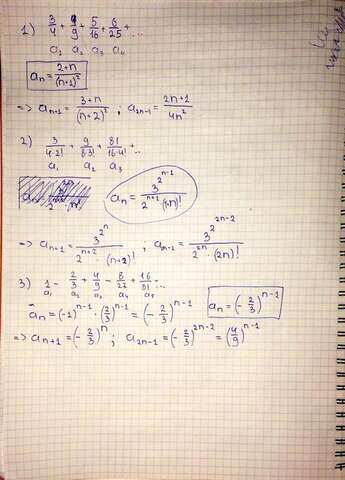 1) 3/4 + 4/9 + 5/16 + 6/25 + ...
a₁ a₂ a₃ a₄
aₙ = (2+n)/(n+1)²
=> aₙ₊₁ = (3+n)/(n+2)² ; a₂ₙ₋₁ = (2n+1)/4n²
2) 3/(4·2!) + 9/(8·3!) + 81/(16·4!) + ...
a₁ a₂ a₃
aₙ = 3^(2^(n-1))/(2^(n+1)·(n+1)!)
=> aₙ₊₁ = 3^(2^n)/(2^(n+2)·(n+2)!) ; a₂ₙ₋₁ = 3^(2^(2n-2))/(2^(2n)·(2n)!)
3) 1 - 2/3 + 4/9 - 8/27 + 16/81 ...
a₁ a₂ a₃ a₄ a₅
aₙ = (-2/3)^(n-1)
aₙ = (-1)^(n-1) · (2/3)^(n-1) = (-2/3)^(n-1)
=> aₙ₊₁ = (-2/3)^n ; a₂ₙ₋₁ = (-2/3)^(2n-2) = (4/9)^(n-1)